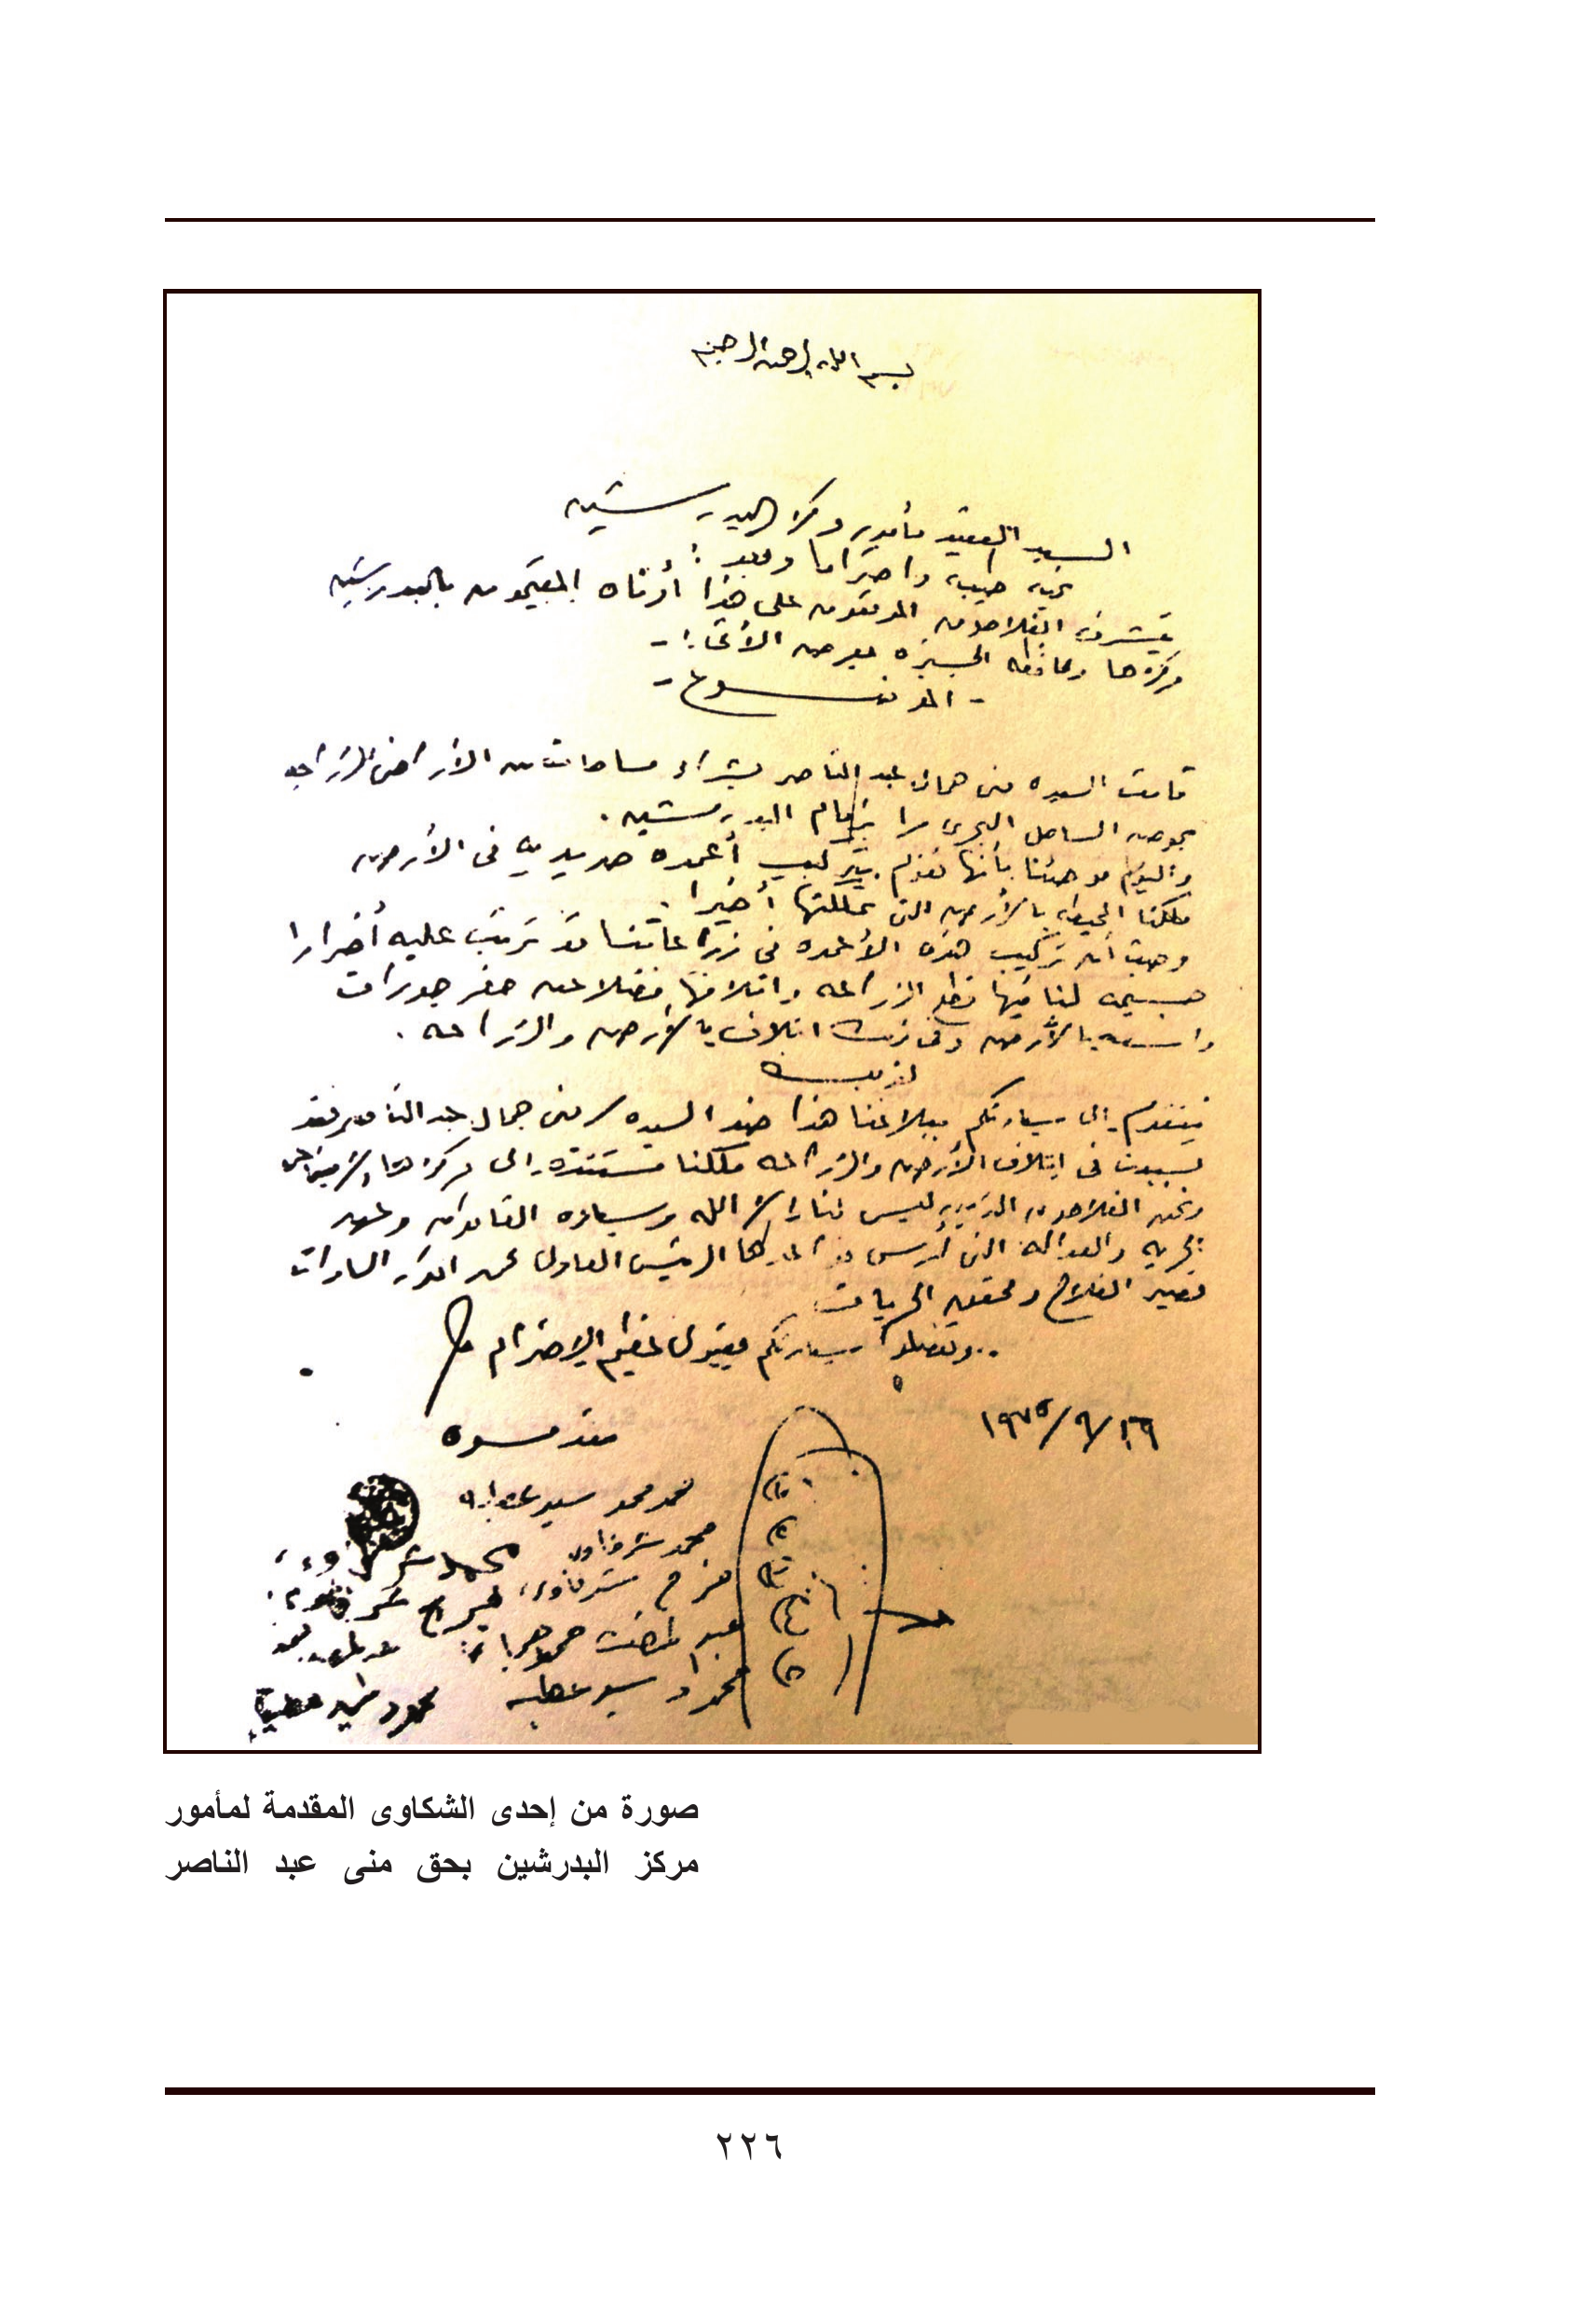 بسم الله الرحمن الرحيم
السيد العقيد مأمور مركز البدرشين
تحيه طيبه واحتراما وبعد :
يتشرف الفلاحون الموقعون على هذا أدناه المقيمون بالبدرشين
مركزها ومحافظه الجيزه بعرض الآتى :-
- الموضوع -
قامت السيده منى جمال عبد الناصر بشراء مساحات من الأراضى الزراعيه
بحوض الساحل البحرى بزمام البدرشين .
واليوم فوجئنا بأنها تقوم بتركيب أعمده حديديه فى الأرض
ملكنا المحيطه بالأرض التى تملكتها أخيرا .
وحيث أن تركيب هذه الأعمده فى زراعاتنا قد ترتب عليه أضرارا
جسيمه لنا فيها قطع الزراعه واتلافها فضلا عن حفر جورات
واسعه بالأرض وفى ذلك اتلاف بالأرض والزراعه .
لذلك
نتقدم إلى سيادتكم ببلاغنا هذا ضد السيده / منى جمال عبد الناصر فقد
تسببت فى إتلاف الأرض والزراعه ملكنا مستنده إلى مركزها
ونحن الفلاحون الذين ليس لنا إلا الله وسياده القانون وعهد
الحريه والعداله التى أرسى الرئيس العادل محمد انور السادات
نصير الفلاح ومحقق الحريات
.. وتفضلوا سيادتكم بقبول عظيم الإحترام
١٩٧٥/٩/٢٦
مقدموه
(١) محمد محمد سيد
(٢) محمد شرقاوى
(٣) فرج شرقاوى
(٤) عبد
(٥) سيد عطيه
محمود سيد عطية
صورة من إحدى الشكاوى المقدمة لمأمور
مركز البدرشين بحق منى عبد الناصر
٢٢٦